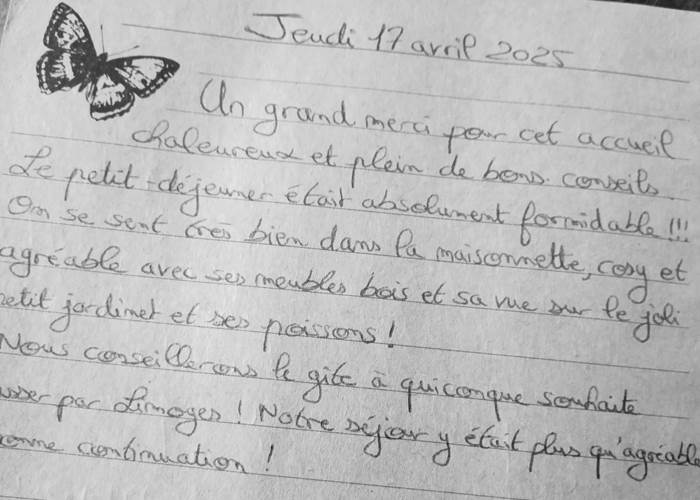 Jeudi 17 avril 2025
Un grand merci pour cet accueil
chaleureux et plein de bons conseils.
Le petit-déjeuner était absolument formidable !!!
On se sent très bien dans la maisonnette, cosy et
agréable avec ses meubles bois et sa vue sur le joli
petit jardinet et ses poissons !
Nous conseillerons le gîte à quiconque souhaite
par Limoges ! Notre séjour y était plus qu'agréable
continuation !